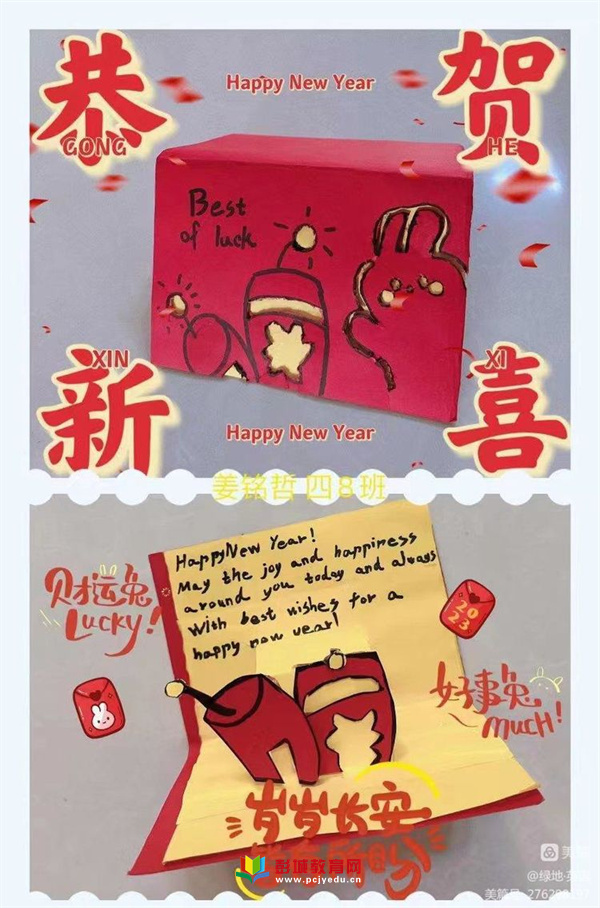 恭 贺
Happy New Year
GONG HE
Best
of luck
XIN XI
新 喜
Happy New Year
姜铭哲 四8班
HappyNew Year!
May the joy and happiness
around you today and always
With best wishes for a
happy new year!
财运兔
Lucky!
2023
好事兔
much!
岁岁长安
彭城教育网
www.pcjyedu.cn
@绿地·英
美篇号